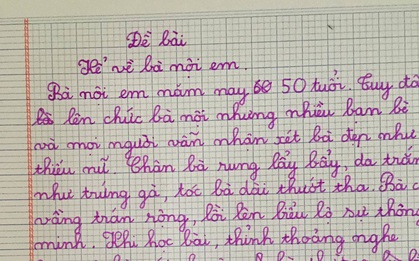 Đề bài
Kể về bà nội em.
Bà nội em năm nay 50 tuổi. Tuy đã
lên chức bà nội nhưng nhiều bạn bè
và mọi người vẫn nhận xét bà đẹp như
thiếu nữ. Chân bà rung lẩy bẩy, da trắn
như trứng gà, tóc bà dài thướt tha. Bà c
vầng trán rộng, lồi lên biểu lộ sự thôn
minh. Khi học bài, thỉnh thoảng nghe